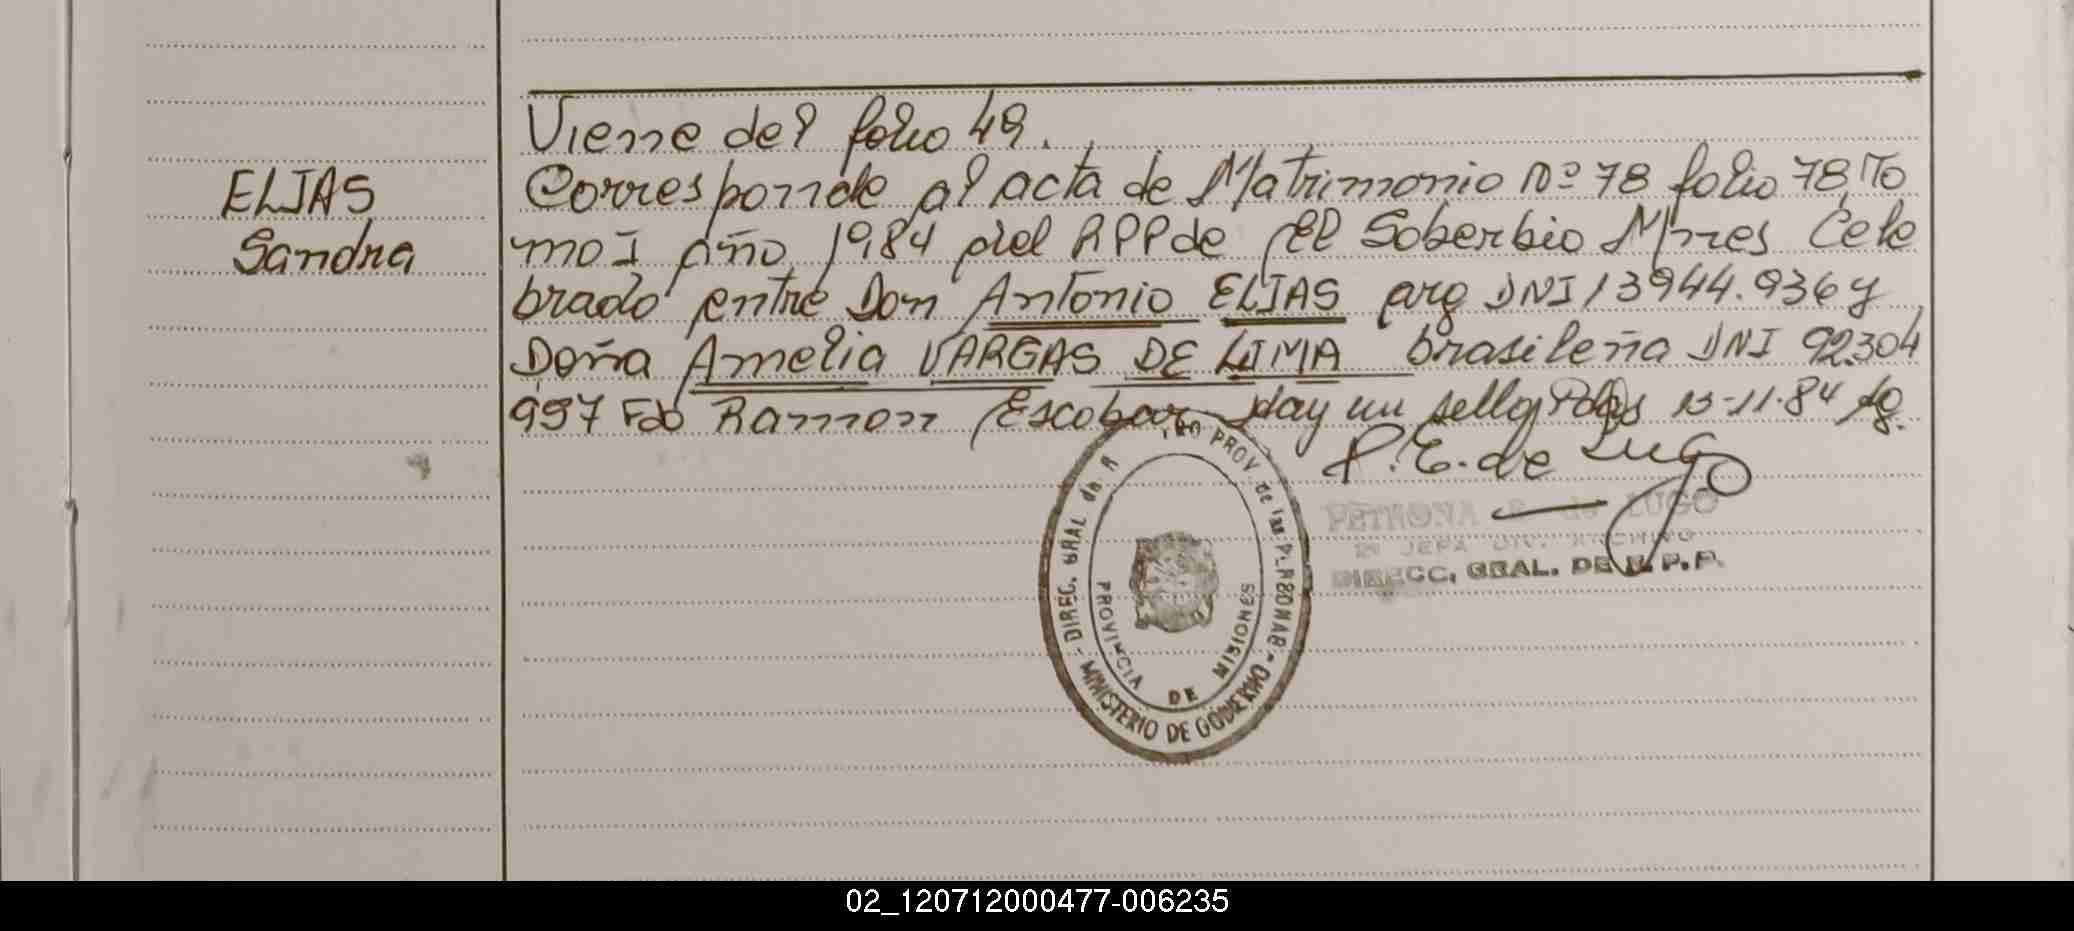 Viene del folio 49.
ELIAS
Sandra
Corresponde al acta de Matrimonio Nº 78 folio 78, To
mo I año 1984 del RPP de El Soberbio Mnes Cele
brado entre Don Antonio ELIAS arg DNI 13944.936 y
Doña Amelia VARGAS DE LIMA brasileña DNI 92304
997 Fdo Ramon Escobar Hay un sello Pdas 13-11-84
P.E. de Lugo
PETRONA E de LUGO
JEFA DIV. ARCHIVO
DIRECC. GRAL. DE R. P. P.
DIREC. GRAL de PROV de las PERSONAS
PROVINCIA DE MISIONES
MINISTERIO DE GOBIERNO
02_120712000477-006235